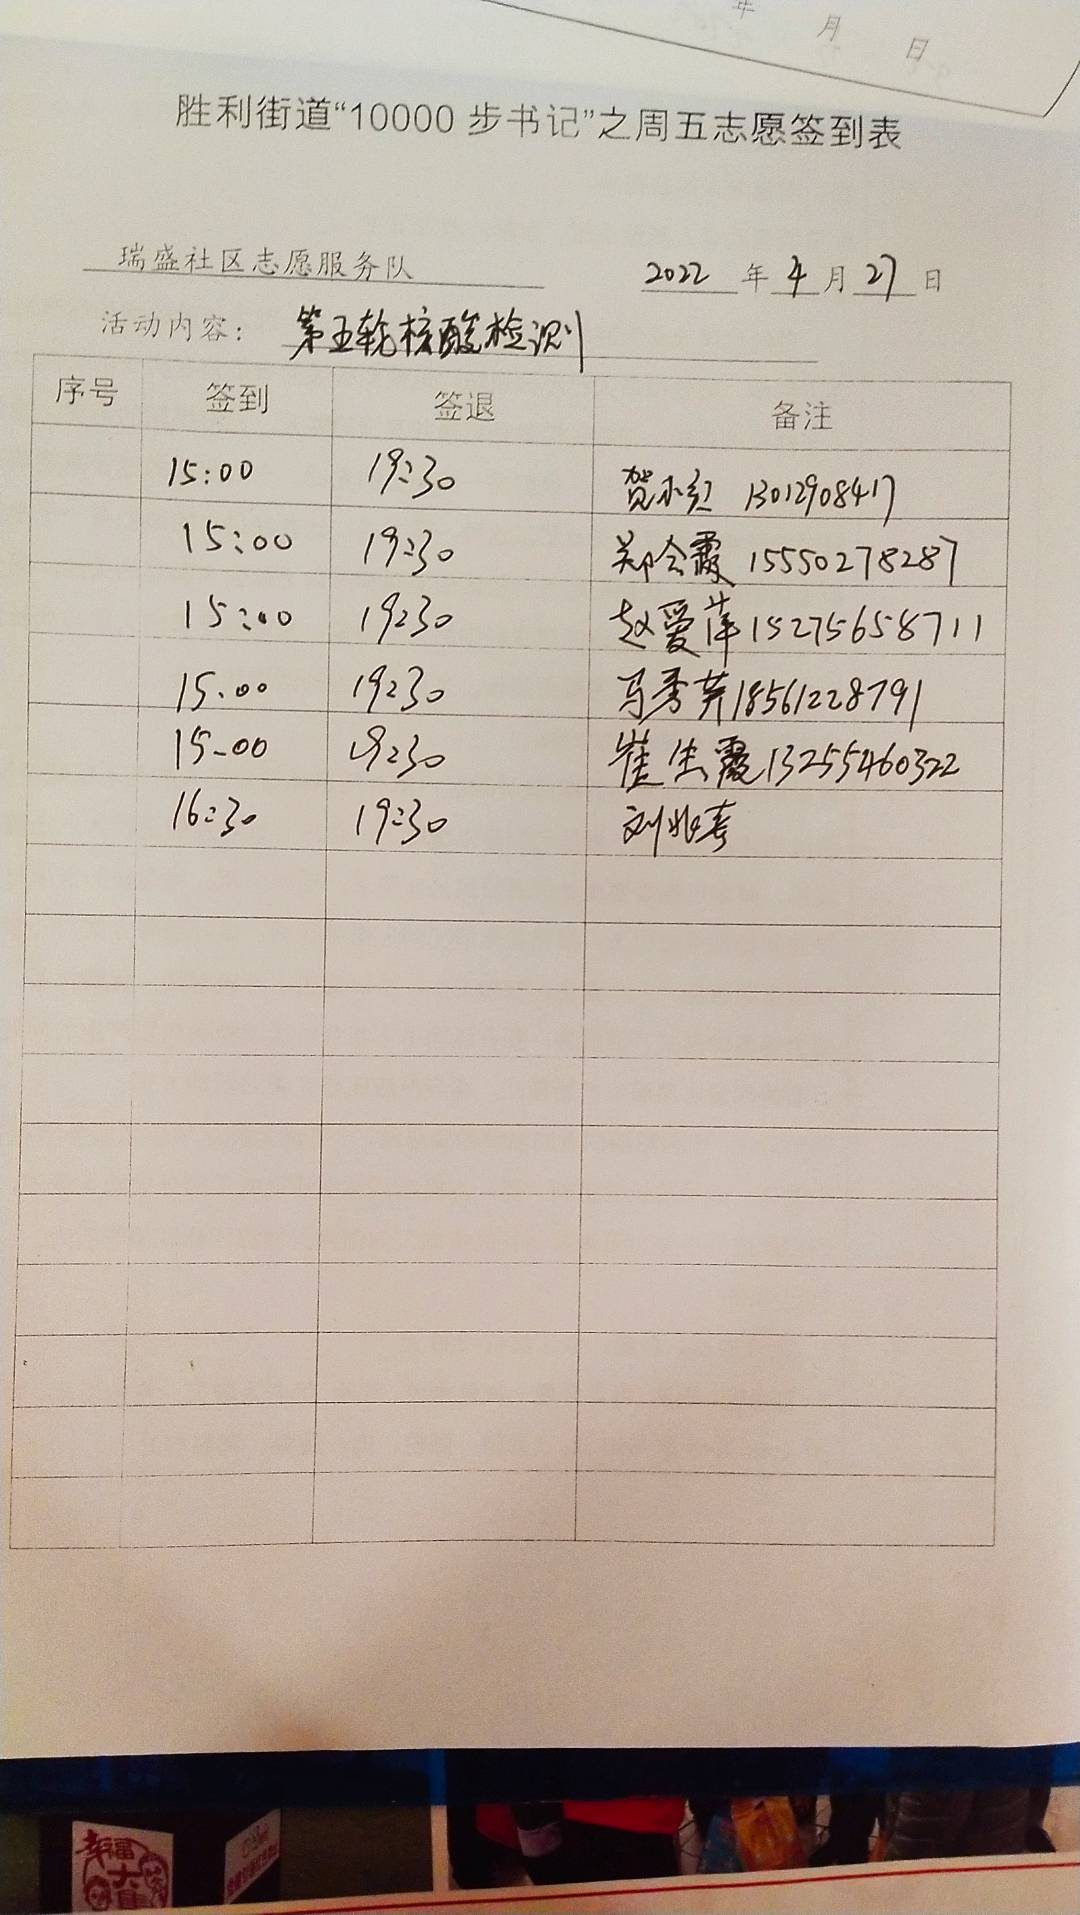 年 月 日
胜利街道“10000 步书记”之周五志愿签到表
瑞盛社区志愿服务队 2022 年 4 月 27 日
活动内容： 第五轮核酸检测
序号 签到 签退 备注
15:00 19:30 贺小红 13012908417
15:00 19:30 郑会霞 15550278287
15:00 19:30 赵爱萍 15275658711
15:00 19:30 马秀芹 18561228791
15-00 19:30 崔生霞 13255460322
16:30 19:30 刘兆春
幸福
大集